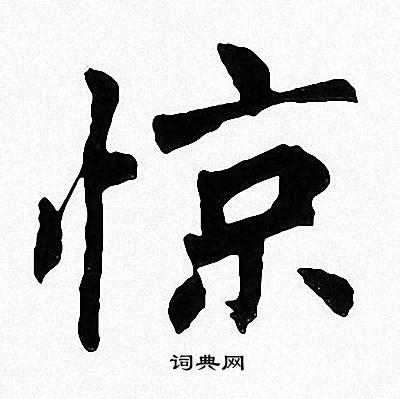 惊
词典网